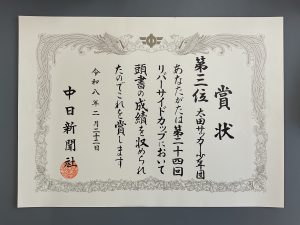 賞状
第三位 太田サッカー少年団
あなたがたは第二十四回
リバーサイドカップにおいて
頭書の成績を収められ
たのでこれを賞します
令和八年二月二十二日
中日新聞社